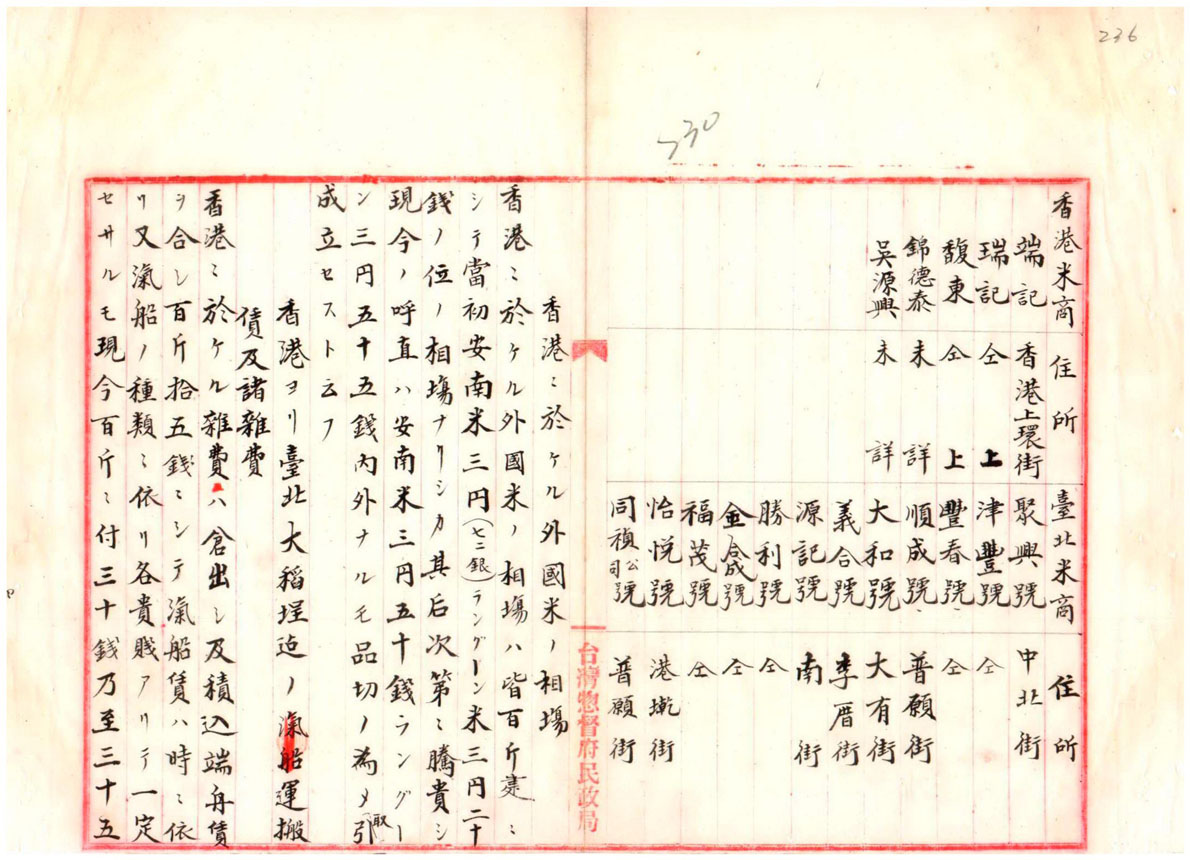 236
230
香港米商 住所 臺北米商 住所
端記 香港上環街 聚興號 中北街
瑞記 仝上 津豐號 仝
馥東 仝上 豐春號 仝
錦德泰 未詳 順成號 普願街
吳源興 未詳 大和號 大有街
義合號 李厝街
源記號 南街
勝利號 仝
金合成號 仝
福茂號 仝
怡悅號 港墘街
同禎公司號 普願街
台灣惣督府民政局
香港ニ於ケル外國米ノ相場
香港ニ於ケル外國米ノ相場ハ皆百斤建ニ
シテ當初安南米三円(七二銀)ラングーン米三円二十
錢ノ位ノ相場ナリシカ其后次第ニ騰貴シ
現今ノ呼直ハ安南米三円五十錢ラングー
ン三円五十五錢内外ナルモ品切ノ為メ引取
成立セストムフ
香港ヨリ臺北大稻埕迠ノ滊船運搬
賃及諸雜費
香港ニ於ケル雜費ハ倉出シ及積込端舟賃
ヲ合シ百斤拾五錢ニシテ滊船賃ハ時ニ依
リ又滊船ノ種類ニ依リ各貴賤アリテ一定
セサルモ現今百斤ニ付三十錢乃至三十五